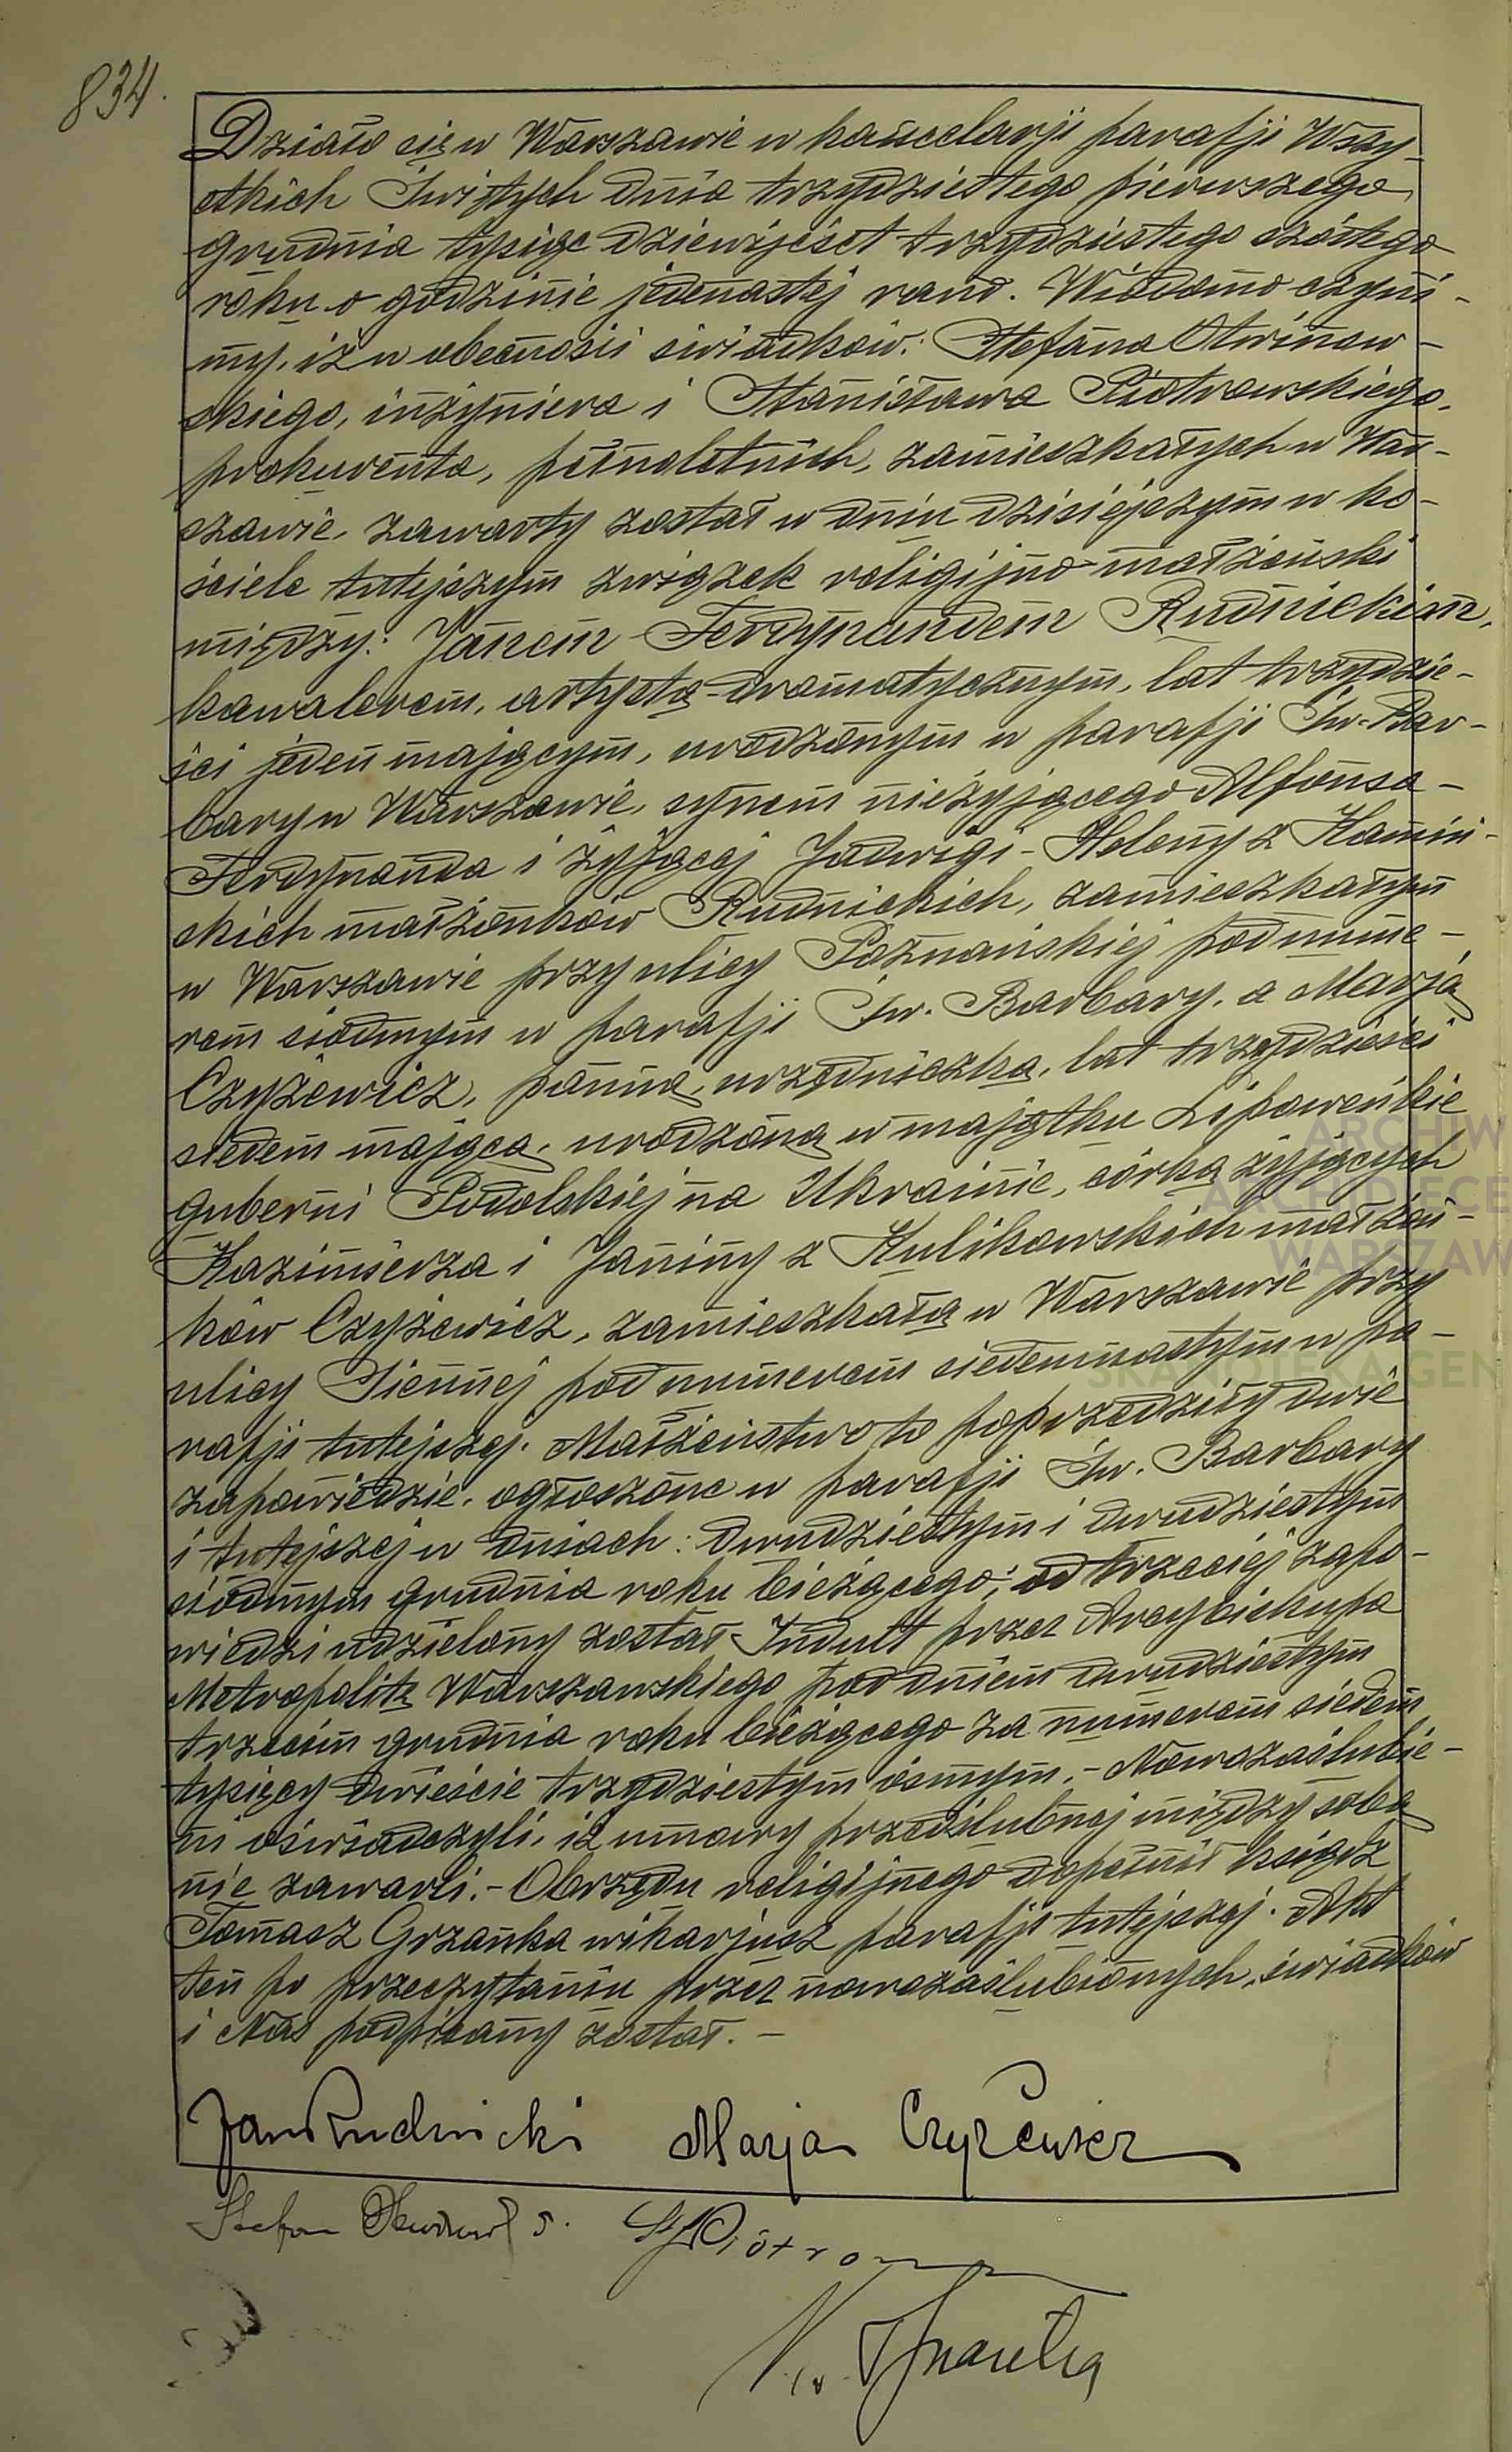 834.
Działo się w Warszawie w kancelarji parafji Wszy-
stkich Świętych dnia trzydziestego pierwszego
grudnia tysiąc dziewięćset trzydziestego szóstego
roku o godzinie jedenastej rano. Wiadomo czyni-
my, iż w obecności świadków: Stefana Otwinow-
skiego, inżyniera i Stanisława Piotrowskiego,
prokurenta, pełnoletnich, zamieszkałych w War-
szawie, zawarty został w dniu dzisiejszym w ko-
ściele tutejszym związek religijno-małżeński
między: Janem-Ferdynandem Rudnickim,
kawalerem, artystą-dramatycznym, lat trzydzie-
ści jeden mającym, urodzonym w parafji Św. Bar-
bary w Warszawie, synem nieżyjącego Alfonsa-
Ferdynanda i żyjącej Jadwigi-Heleny z Kamiń-
skich małżonków Rudnickich, zamieszkałym
w Warszawie przy ulicy Poznańskiej pod nume-
rem siódmym w parafji Św. Barbary, a Marją
Czyżewicz, panną, urzędniczką, lat trzydzieści
siedem mającą, urodzoną w majątku Lipoweńkie
guberni Podolskiej na Ukrainie, córką żyjących
Kazimierza i Janiny z Kulikowskich małżon-
ków Czyżewicz, zamieszkałą w Warszawie przy
ulicy Siennej pod numerem siedemnastym w pa-
rafji tutejszej. Małżeństwo to poprzedziły dwie
zapowiedzie, ogłoszone w parafji Św. Barbary
i tutejszej w dniach: dwudziestym i dwudziestym
siódmym grudnia roku bieżącego; od trzeciej zapo-
wiedzi udzielony został Indult przez Arcybiskupa
Metropolitę Warszawskiego pod dniem dwudziestym
trzecim grudnia roku bieżącego za numerem siedem
tysięcy dwieście trzydziestym ósmym.- Nowozaślubie-
ni oświadczyli, iż umowy przedślubnej między sobą
nie zawarli.- Obrzędu religijnego dopełnił ksiądz
Tomasz Grzanka wikarjusz parafji tutejszej. Akt
ten po przeczytaniu przez nowozaślubionych, świadków
i Nas podpisany został.-
Jan Rudnicki Marja Czyżewicz
Stefan
ARCHIW
ARCHIDIECE
WARSZAW
SKANOTEKA GEN